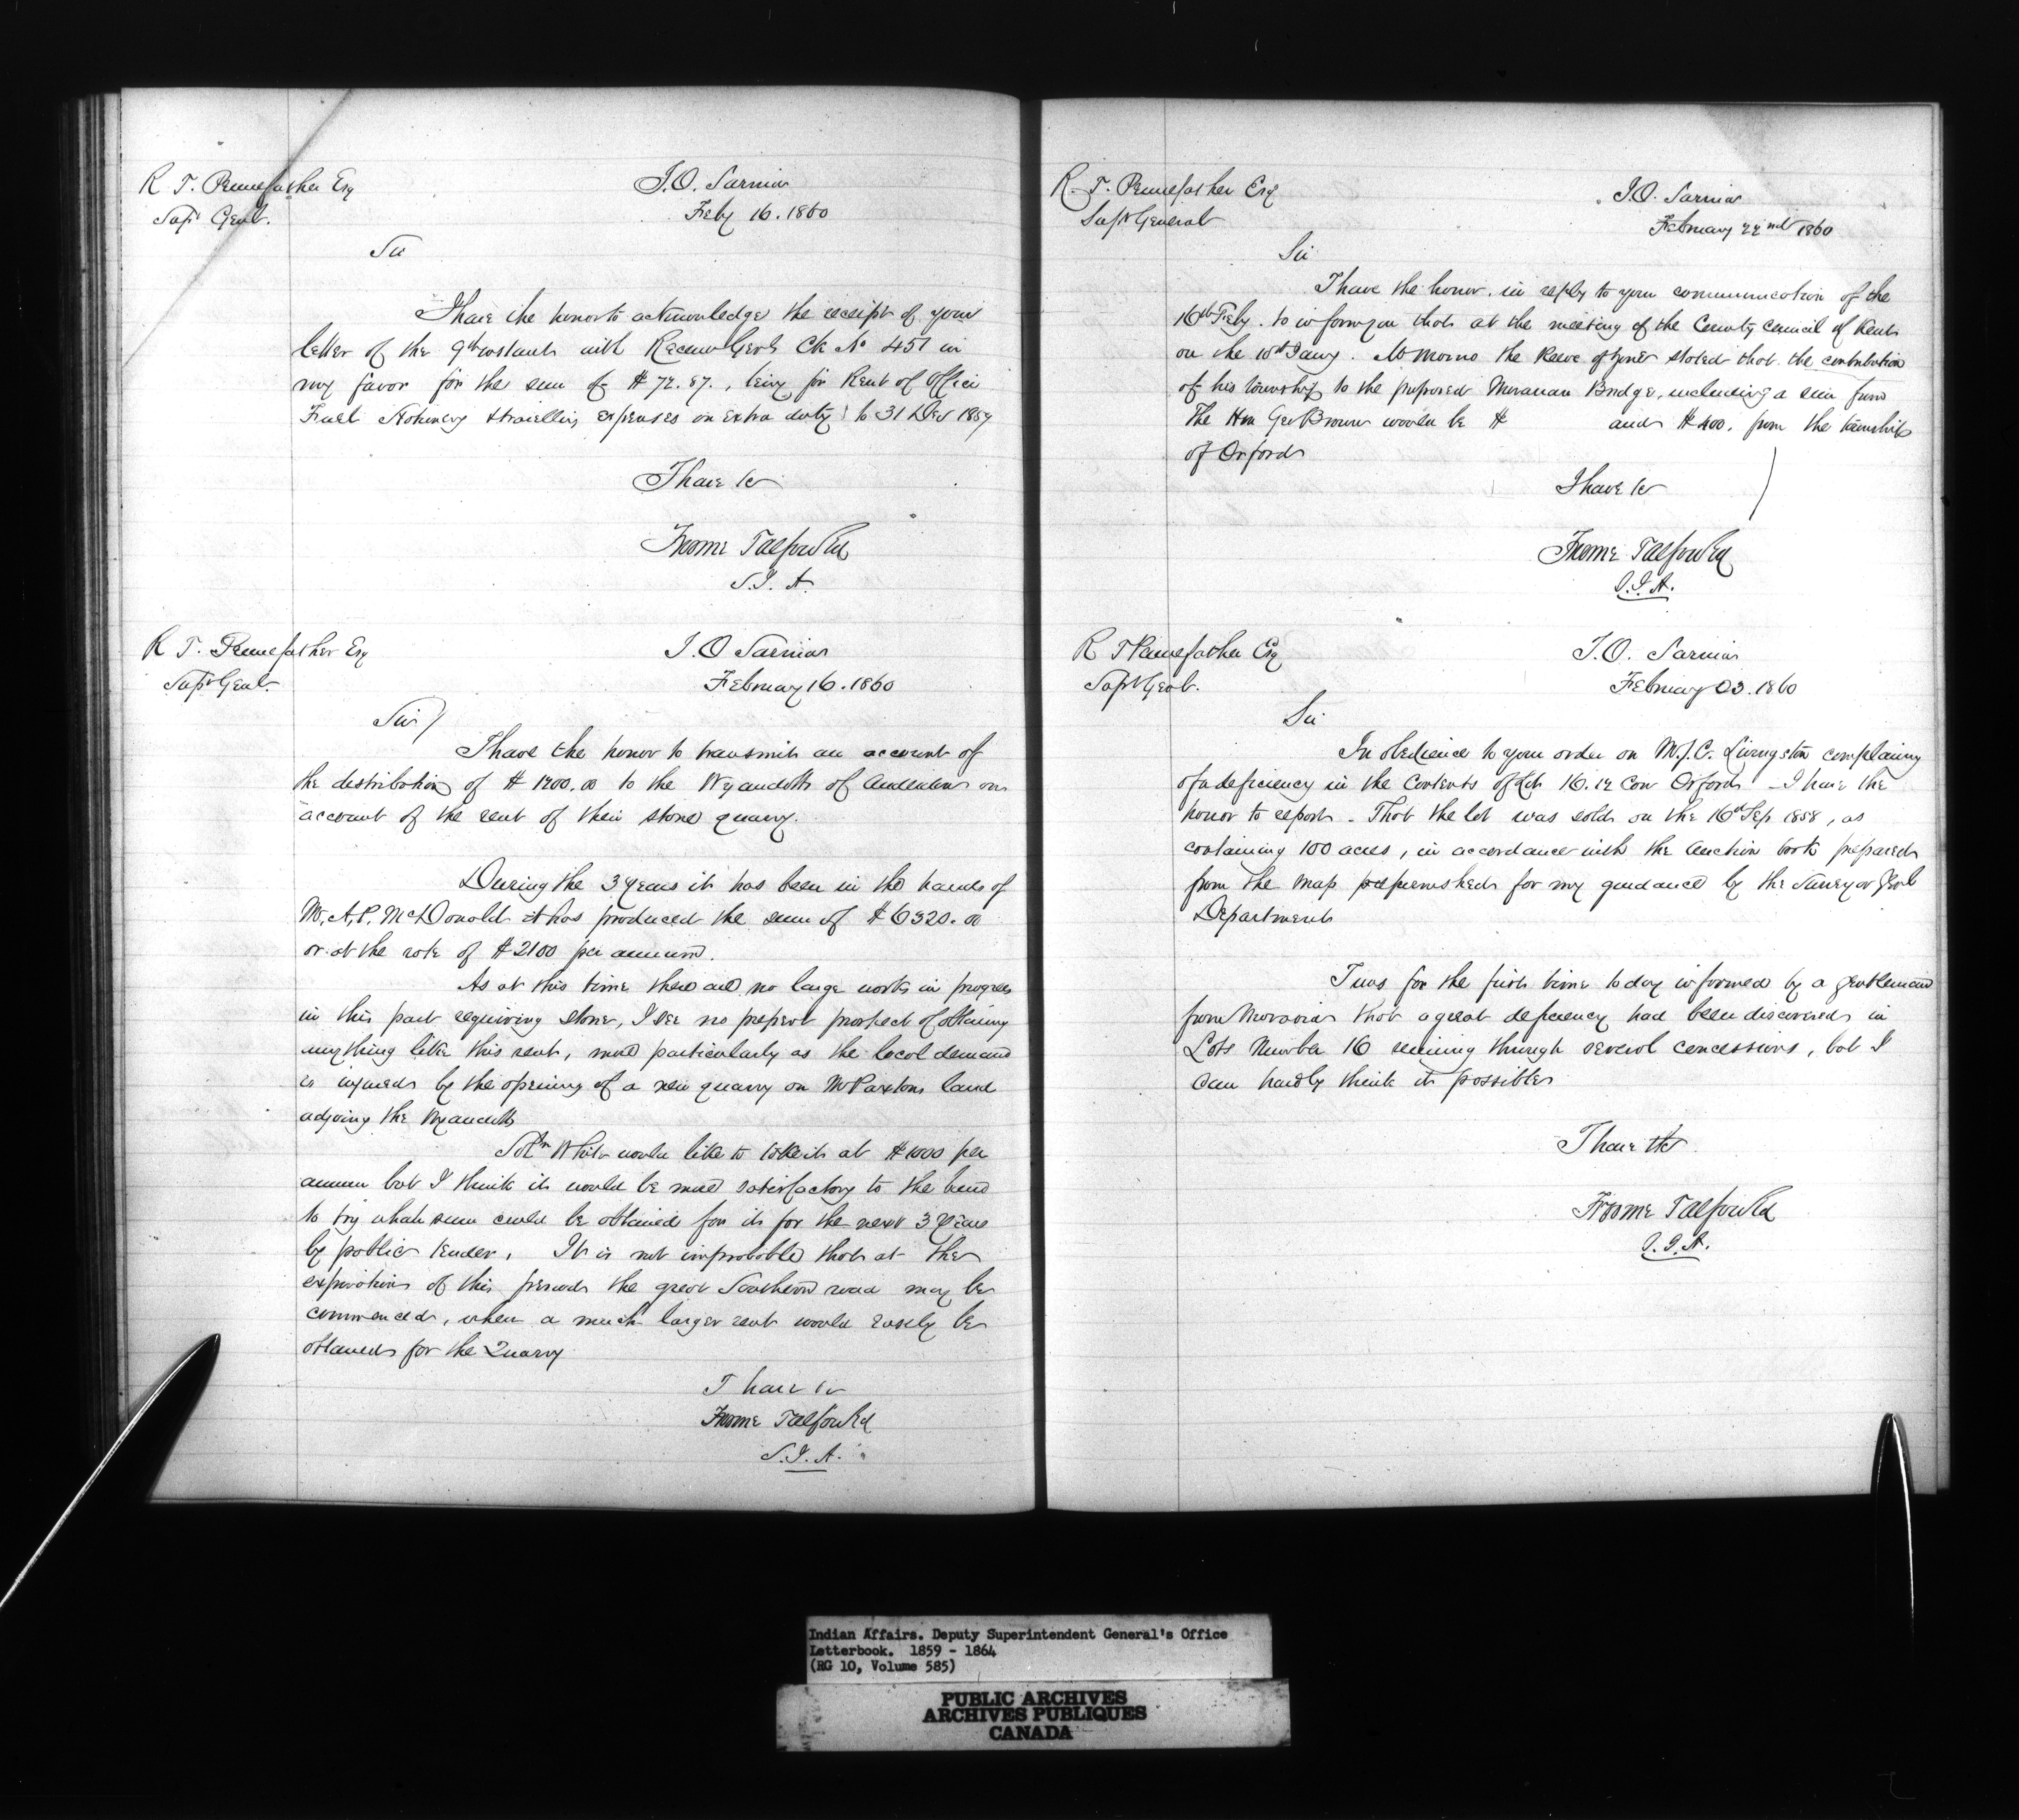 R T. Pennefather Esq
Supt Genl.
I.O. Sarnia
Feby 16. 1860
Sir
I have the honor to acknowledge the receipt of your
letter of the 9th instant with Receiver Genls Ck No 451 in
my favor for the sum of $72.87., being for Rent of Office
Fuel Stationery & travelling expenses on extra duty to 31 Dec 1859
I have &c
Froome Talfourd
S.I.A
R T. Pennefather Esq
Supt Genl.
I.O Sarnia
February 16. 1860
Sir
I have the honor to transmit an account of
the distribution of $1200.00 to the Wyandotts of Anderdon on
account of the rent of their stone quarry.
During the 3 years it has been in the hands of
Mr. A.P. McDonald it has produced the sum of $6320.00
or at the rate of $2100 per annum.
As at this time there are no large works in progress
in this part requiring stone, I see no prospect of obtaining
anything like this rent, more particularly as the local demand
is injured by the opening of a new quarry on Mr Paxtons land
adjoing the Wyandotts
Soln White would like to take it at $1000 per
annum but I think it would be more satisfactory to the band
to try what sum could be obtained for it for the next 3 years
by public tender. It is not improbable that at the
expiration of this period the great Southern road may be
commenced, when a much larger rent would easily be
obtained for the Quarry
I have &c
Froome Talfourd
S.I.A.
R. T. Pennefather Esq
Supt General
I.O. Sarnia
February 22nd 1860
Sir
I have the honor, in reply to your communication of the
16th Feby. to inform you that at the meeting of the County Council of Kent
on the Jany. Mr the Reeve of stated that the contribution
of his township to the proposed Moravian Bridge, including a sum from
The Hon Geo Brown would be $ and $400. from the township
of Orford
I have &c
Froome Talfourd
S.I.A.
R T Pennefather Esq
Supt Genl.
I.O. Sarnia
February 23. 1860
Sir
In obedience to your order on Mr J.C. Livingston complaining
of a deficiency in the Contents of Lot 16. 12 Con Orford - I have the
honor to report - That the lot was sold on the 16th Sep 1858, as
containing 100 acres, in accordance with the Auction book prepared
from the map furnished for my guidance by the Surveyor Genl
Department
I was for the first time to day informed by a gentleman
from Moravian that a great deficiency had been discovered in
Lots Number 16 running through several concessions, but I
can hardly think it possible
I have &c
Froome Talfourd
S.I.A.
Indian Affairs. Deputy Superintendent General's Office
Letterbook. 1859 - 1864
(RG 10, Volume 585)
PUBLIC ARCHIVES
ARCHIVES PUBLIQUES
CANADA